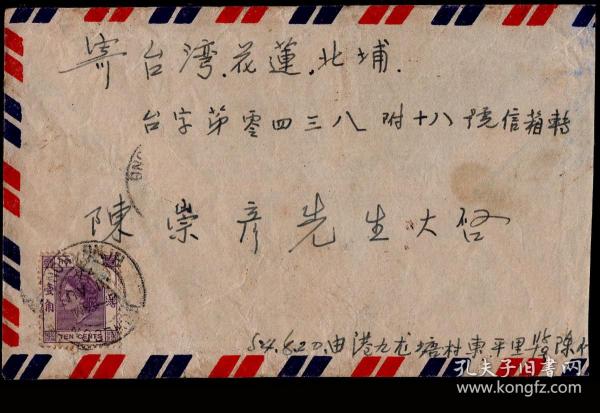 寄台湾.花蓮.北埔.
台字第零四三八附十八號信箱轉
陳崇彦先生大啓
TEN CENTS
54.8.20.由港九龙塘村東平里 陳
孔夫子旧书网
www.kongfz.com